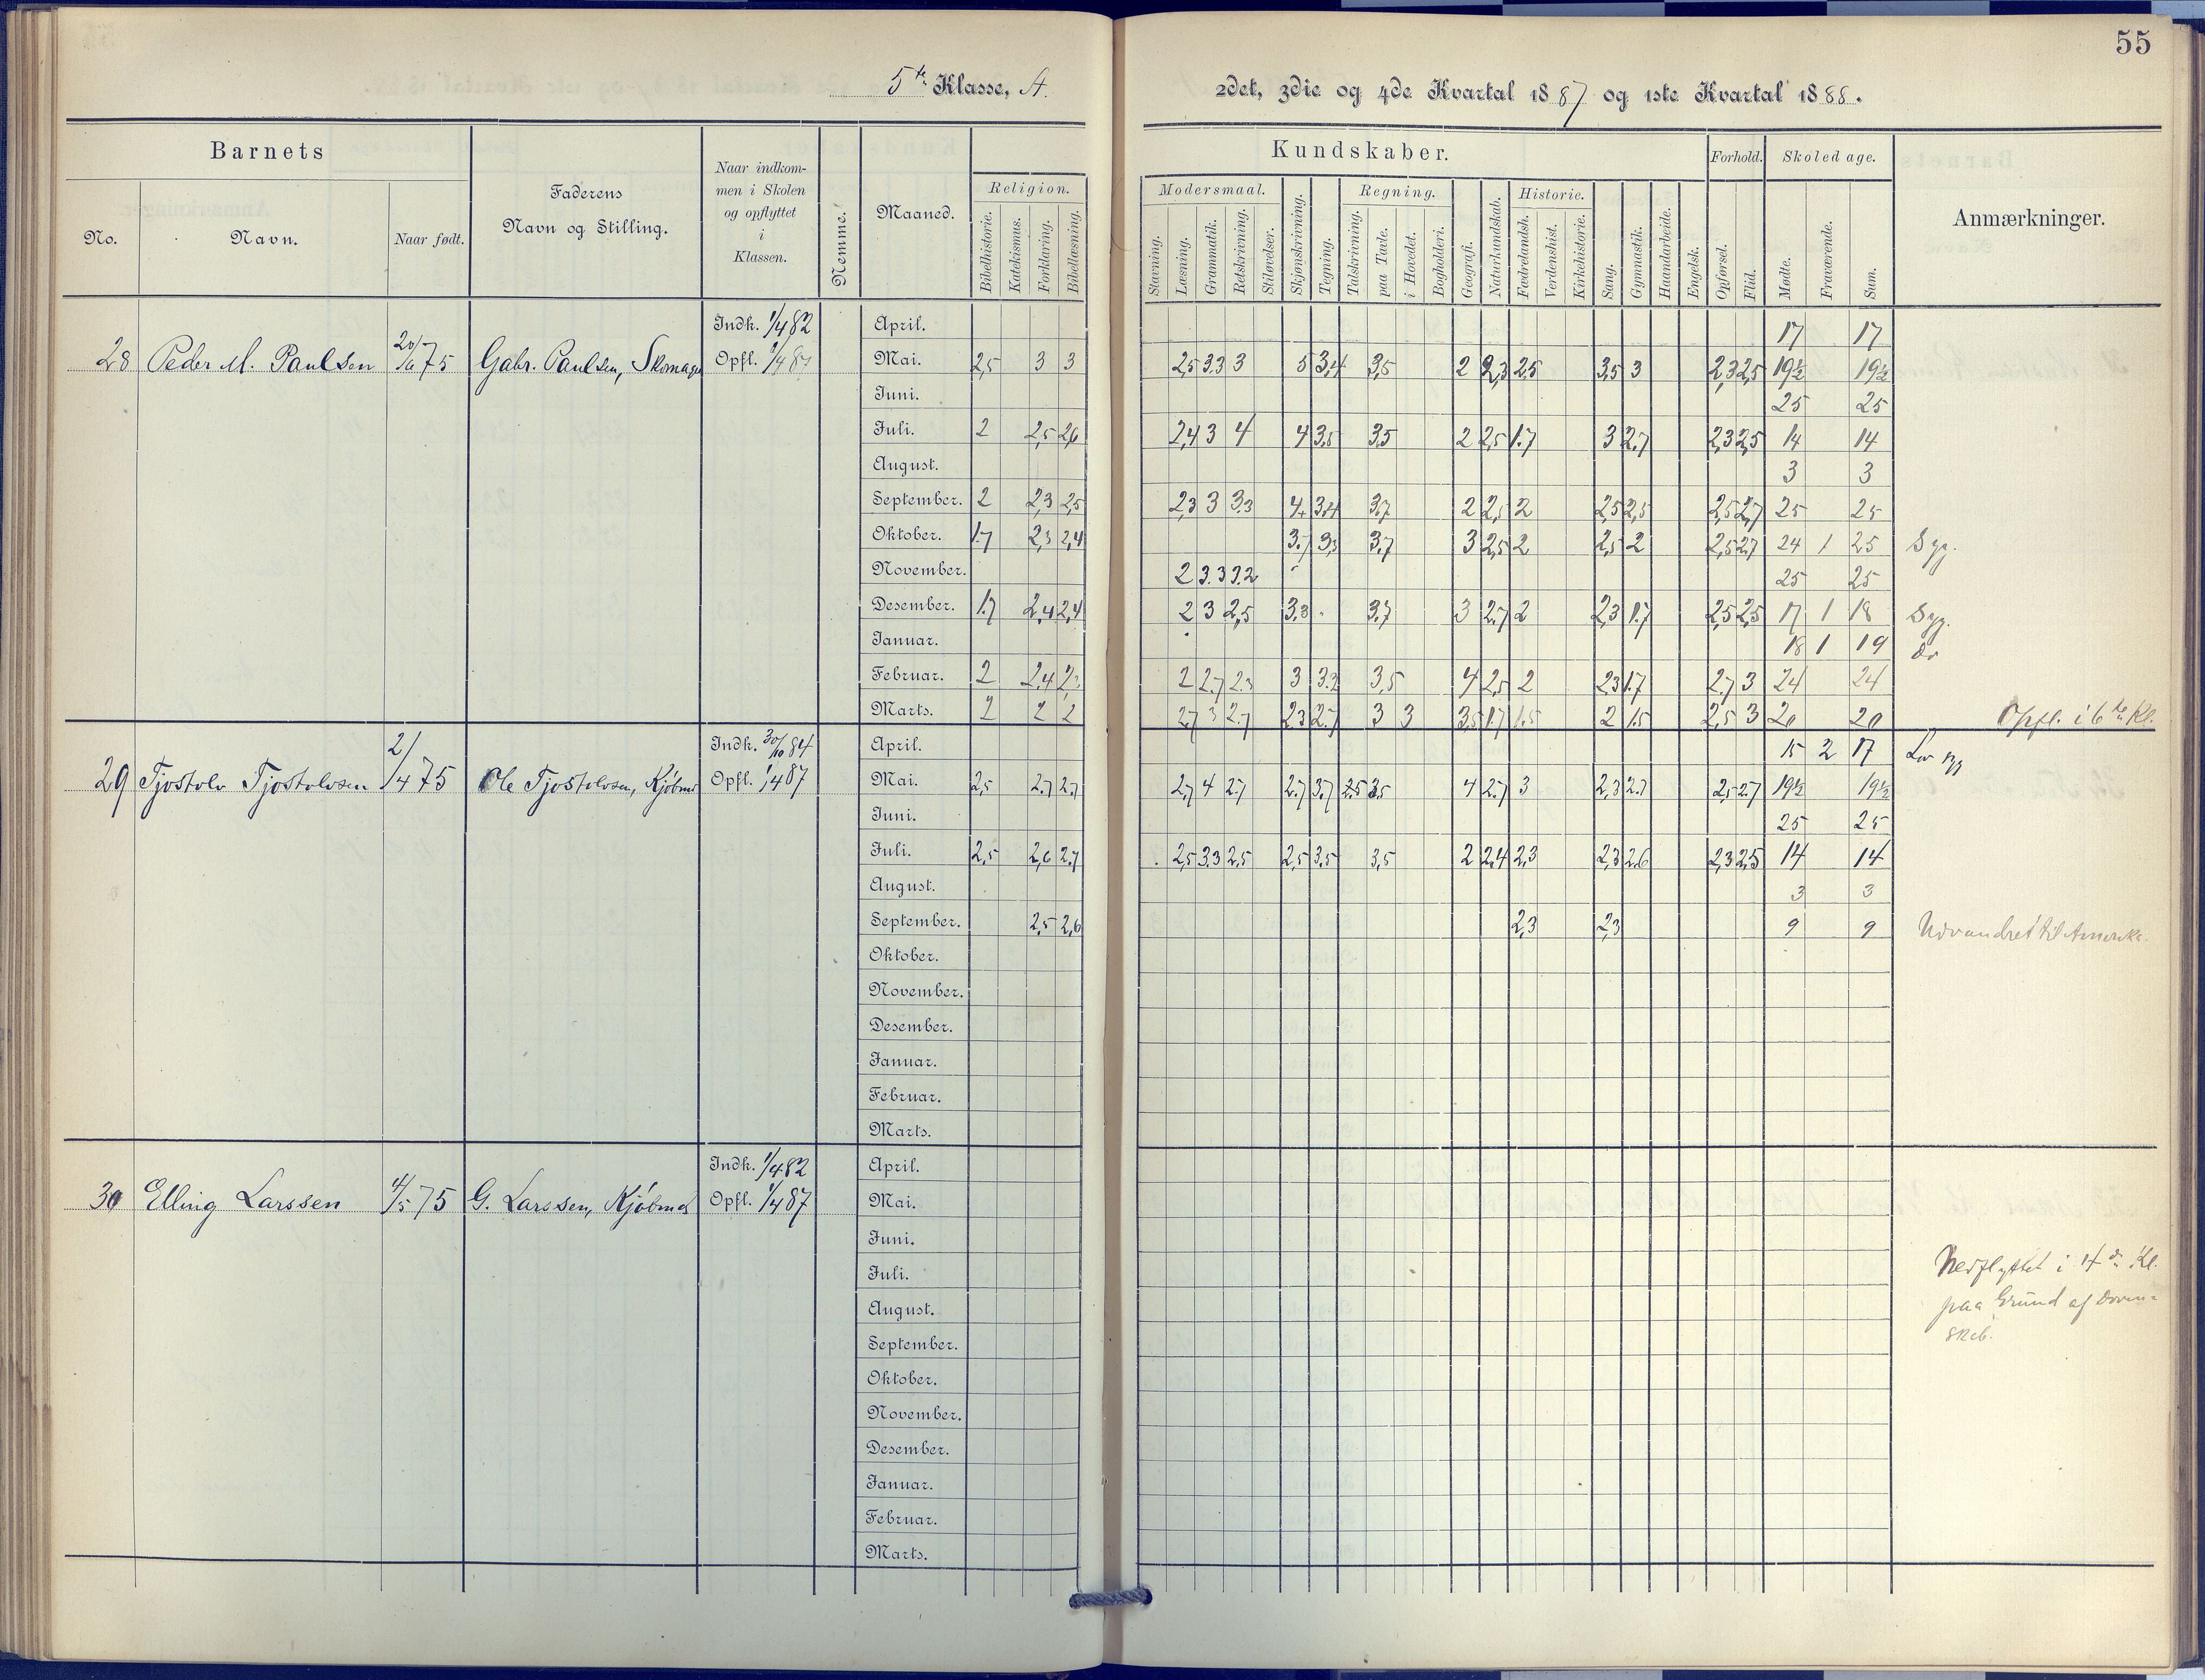 55
5te Klasse, A.
2det, 3die og 4de Kvartal 1887 og 1ste Kvartal 1888.
Barnets
Faderens
Navn og Stilling.
Naar indkom-
men i Skolen
og opflyttet
i
Klassen.
Nemme.
Maaned.
Kundskaber.
Forhold.
Skoledage.
Anmærkninger.
No.
Navn.
Naar født.
Religion.
Modersmaal.
Regning.
Historie.
Bibelhistorie.
Katekismus.
Forklaring.
Bibellæsning.
Stavning.
Læsning.
Grammatik.
Retskrivning.
Stiløvelser.
Skjønskrivning.
Tegning.
Talskrivning.
paa Tavle.
i Hovedet.
Bogholderi.
Geografi.
Naturkundskab.
Fædrelandsh.
Verdenshist.
Kirkehistorie.
Sang.
Gymnastik.
Haandarbeide.
Engelsk.
Opførsel.
Flid.
Mødte.
Fraværende.
Sum.
28 Peder M. Paulsen 75 Gabr. Paulsen,
Indk. 1/4 82
Opfl. 1/4 87
April. 17 17
Mai. 2,5 3 3 2,5 3.3 3 5 3,4 3,5 2 2,3 2.5 3,5 3 2,3 2,5 19½ 19½
Juni. 25 25
Juli. 2 2,5 2,6 2,4 3 4 4 3,5 3,5 2 2,5 1.7 3 2.7 2,3 2,5 14 14
August. 3 3
September. 2 2,3 2,5 2,3 3 3.3 4 3,4 3,7 2 2,5 2 2,5 2,5 2,5 2,7 25 25
Oktober. 1.7 2,3 2,4 3.7 3,3 3,7 3 2,5 2 2,5 2 2,5 2.7 24 1 25 Syg.
November. 2 3.3 3.2 25 25
Desember. 1.7 2,4 2,4 2 3 2,5 3.3 3,7 3 2.7 2 2,3 1.7 2,5 2,5 17 1 18 Syg.
Januar. 18 1 19 do
Februar. 2 2,4 2 2.7 2.3 3 3.2 3,5 4 2,5 2 2,3 1.7 2.7 3 24 24
Marts. 2 2 2 2.7 3 2.7 2,3 2.7 3 3 3,5 1.7 1.5 2 1.5 2,5 3 20 20 Opfl. i 6te Kl.
29 Tjostolv Tjostolvsen 2/4 75 Ole Tjostolvsen, Kjøbmd
Indk. 30/10 84
Opfl. 1/4 87
April. 15 2 17
Mai. 2,5 2.7 2.7 2,7 4 2.7 2.7 3,7 2.5 3.5 4 2.7 3 2,3 2.7 2,5 2.7 19½ 19½
Juni. 25 25
Juli. 2,5 2,6 2.7 2,5 3.3 2,5 2,5 3,5 3,5 2 2,4 2,3 2,3 2.6 2,3 2,5 14 14
August. 3 3
September. 2,5 2,6 2,3 2,3 9 9 Udvandret til Amerika.
Oktober.
November.
Desember.
Januar.
Februar.
Marts.
30 Elling Larssen 4/5 75 G. Larssen, Kjøbmd
Indk. 1/4 82
Opfl. 1/4 87
April.
Mai.
Juni.
Juli.
August.
September.
Oktober.
November.
Desember.
Januar.
Februar.
Marts.
Nedflyttet i 4de Kl.
paa Grund af Doven-
skab.